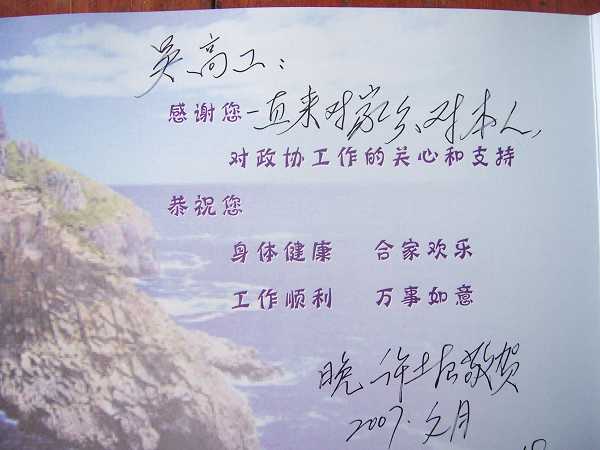 吴高工：
感谢您一直来对家乡、对本人、
对政协工作的关心和支持
恭祝您
身体健康 合家欢乐
工作顺利 万事如意
晚 许 敬贺
2007. 月